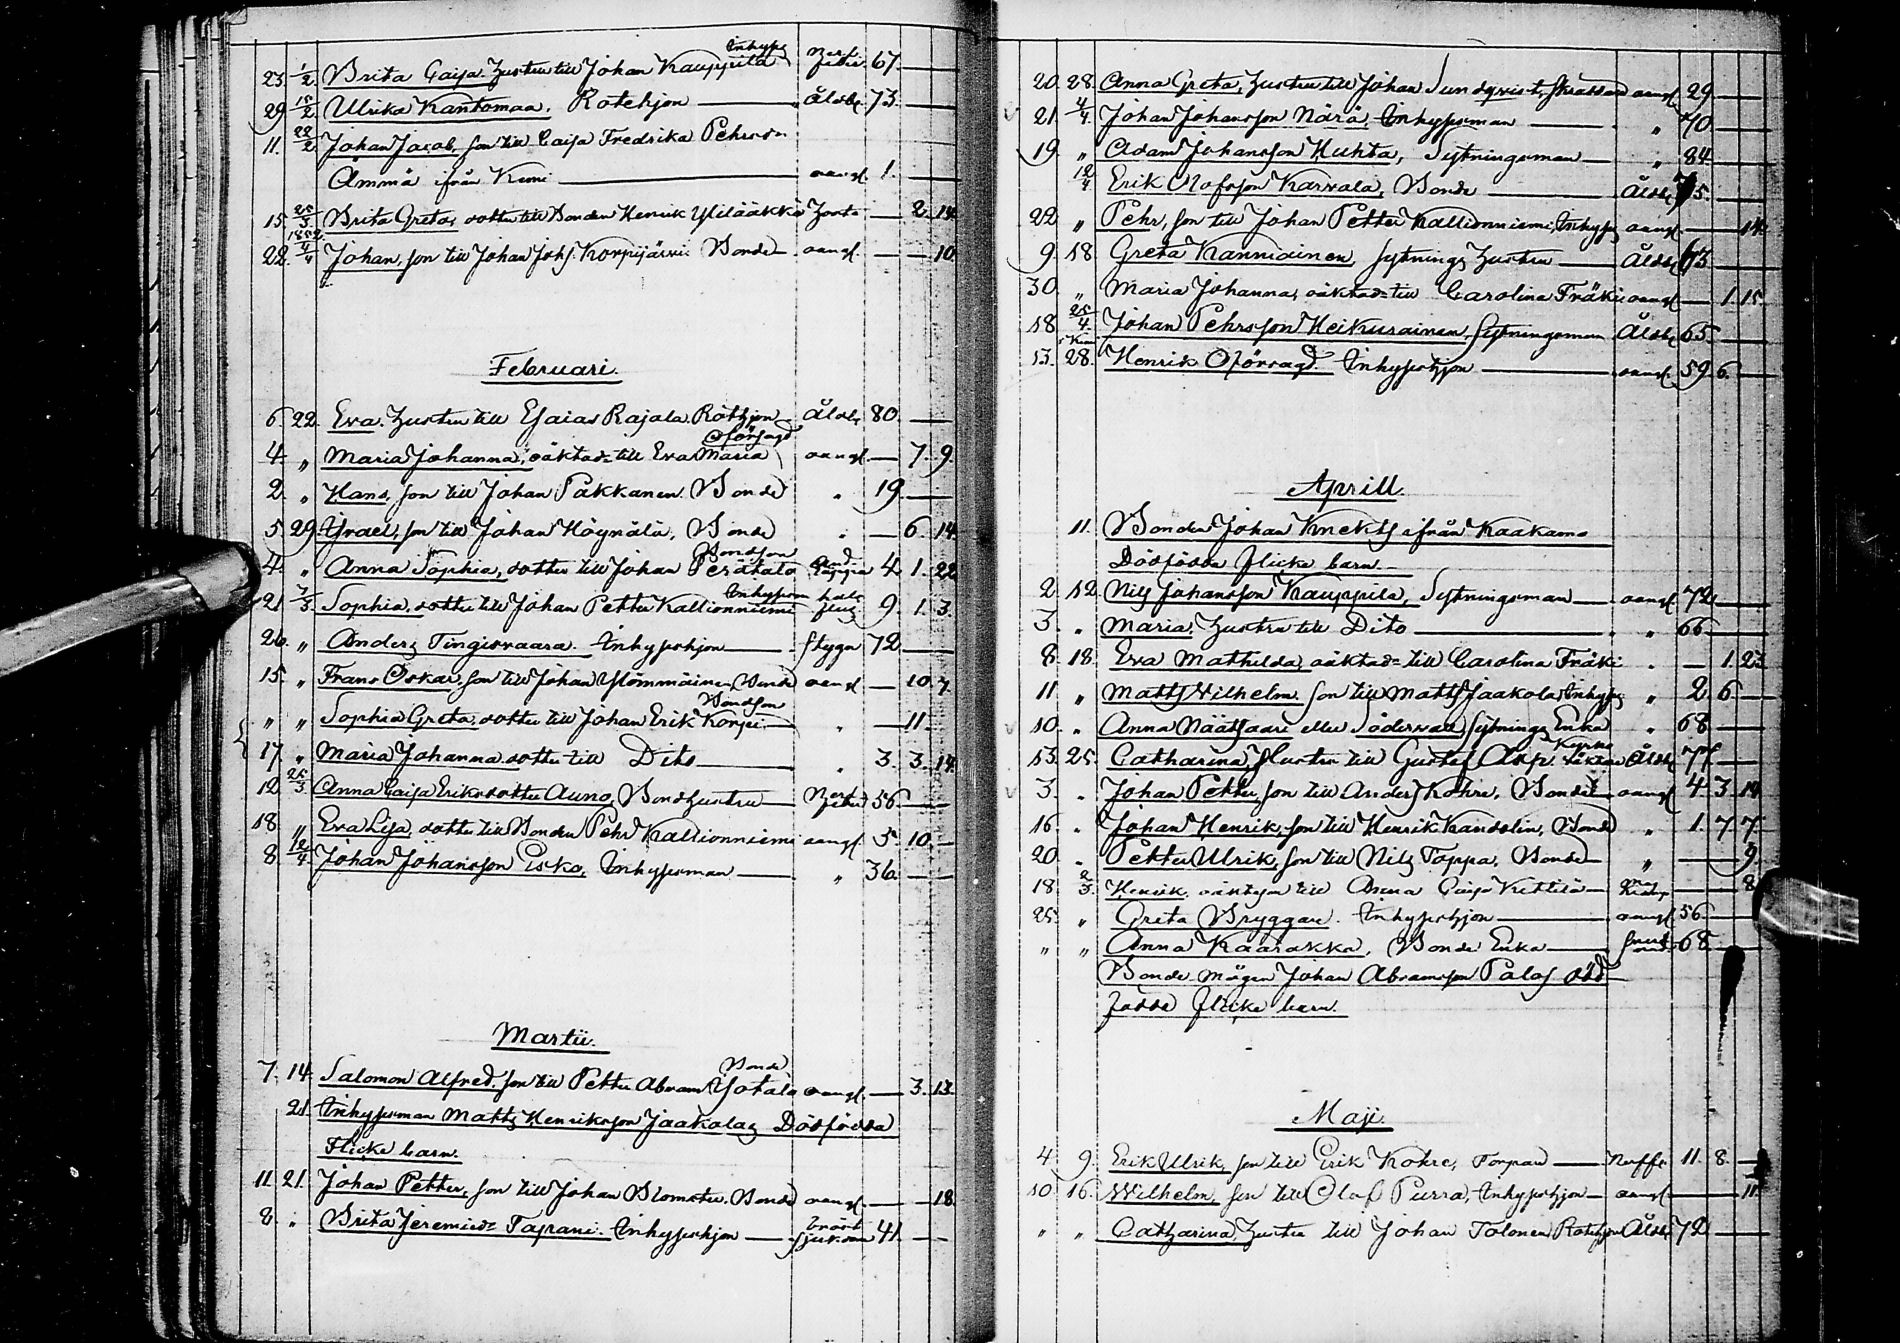 23. 1/2. Brita Caisa. hustru till Johan Kauppila Inhyses 67.
29 15/2 Ulrika Kantomaa, Rotehjon Åldr. 73.
11. 22/2 Johan Jacob, son till Caisa Fredrika Pehrsdr
Ämmä ifrån Kemi oangf. 1.
15. 25/3. Brita Greta, dotter till Bonden Henrik Yliääkkö 2. 14.
22. 1852 4/4 Johan, son till Johan Johs. Korpijärvi Bonde oangf. 10.
Februari.
6. 22. Eva. hustru till Esaias Rajala. Rothjon Åldr. 80.
4. " Maria Johanna, oäktad= till Eva Maria oangf. 7. 9.
2. " Hans, son till Johan Pakkanen. Bonde " 19
5. 29. Israel, son till Johan Höynälä, Bonde " 6. 14.
4. " Anna Sophia, dotter till Johan Perätalo Bondson 4. 1. 22
21 7/3. Sophia, dotter till Johan Petter Kallionniemi Inhysesm hals 9. 1. 3.
20. " Anders Tingisvaara. Inhyseshjon stygn 72
15. " Frans Oskar, son till Johan Ylömmäinen, Bonde oangf 10. 7.
" " Sophia Greta, dotter till Johan Erik Korpi Bondson " 11.
17. " Maria Johanna dotter till Dito " 3. 3. 14.
12. 25/3. Anna Caisa Eriksdotter Auno, Bondhustru 56
18. " Eva Lisa, dotter till Bonden Pehr Kallionniemi oangf. 5. 10.
8. 12/4. Johan Johansson Esko, Inhysesman " 36.
Martii.
7. 14. Salomon Alfred. son till Petter Abram Yotala Bonde oangf. 3. 13.
21. Inhysesman Matts Henriksson Jaakolas Dödfödda
Flicke barn.
11. 21. Johan Petter, son till Johan Blomster. Bonde oangf. 18.
8. " Brita Jeremied= Taprani. Inhyseshjon bröst sjukdom 41.
20. 28. Anna Greta, hustru till Johan Sundqvist, Skräddare oangf. 29
21. 4/4. Johan Johansson Närä, Inhysesman " 70.
19. " Adam Johansson Huhta, Sytningsman " 84
12/4 Erik Olofsson Karvala, Bonde Åldr. 75.
22 " Pehr, son till Johan Petter Kallionniemi, Inhyses oangf. 14.
9. 18 Greta Kanniainen, sytnings hustru Åldr. 63
30. " Maria Johanna, oäktad= till Carolina Fräki oangf. 1. 15.
18. 25/4. Johan Pehrsson Heikurainen, Sytningsman Åldr. 65.
13. 28. Henrik Oförsagd. Inhyseshjon oangf. 59. 6.
Aprill.
11. Bonden Johan Knekts ifrån Kaakamo
Dödfödda flicke barn.
2. 12. Nils Johansson Kauppila, Sytningsman oangf. 72.
3. " Maria, hustru till Dito " 66
8. 18. Eva Mathilda, oäktad= till Carolina Fräki " 1. 23
11. " Matts Wilhelm. son till Matts Jaakola, Inhyses " 2. 6
10. " Anna Näätsaari eller Södervall, Sytnings Enka " 68
13. 25. Catharina, Hustru till Gustaf Asp. Kyrko Åldr. 77.
3. " Johan Petter, son till Anders Kohre, Bonde oangf. 4 3 14
16. " Johan Henrik, son till Henrik Kandelin, Bonde " 1. 7 7.
20. " Petter Ulrik, son till Nils Tappa. Bonde " 9.
18. 2/5. Henrik. oäkt son till Anna Caisa Kittilä 8.
25. " Greta Bryggare. Inhyseshjon oangf. 56
" " Anna Kaarakka, Bonde Enka 68.
Bonde mågen Johan Abramsson Palos död
födda flicke barn.
Maji.
4. 9. Erik Ulrik, son till Erik Kohre, Torpare 11. 8.
10. 16. Wilhelm, son till Olof Purra, Inhyseshjon oangf 11.
" " Catharina, hustru till Johan Tolonen Rotehjon Åldr. 72